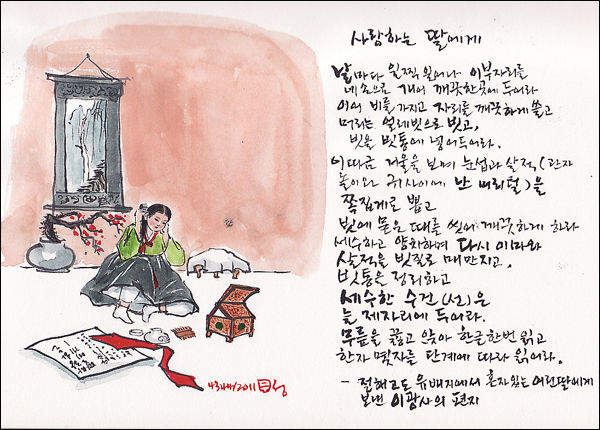 사랑하는 딸에게
날마다 일찍 일어나 이부자리를
네 손으로 개어 깨끗한 곳에 두어라
이어 비를 가지고 자리를 깨끗하게 쓸고
머리는 얼레빗으로 빗고,
빗을 빗통에 넣어두어라.
이따금 거울을 보며 눈썹과 살쩍(관자
놀이와 귀 사이에 난 머리털)을
쪽집게로 뽑고
빗에 묻은 때를 씻어 깨끗하게 하라
세수하고 양치하며 다시 이마와
살쩍을 빗질로 매만지고,
빗통을 정리하고
세수한 수건(선)은
늘 제자리에 두어라.
무릎을 꿇고 앉아 한글 한번 읽고
한자 몇자를 단계에 따라 읽어라.
- 절해고도 유배지에서 혼자있는 어린딸에게
보낸 이광사의 편지
4344/2011